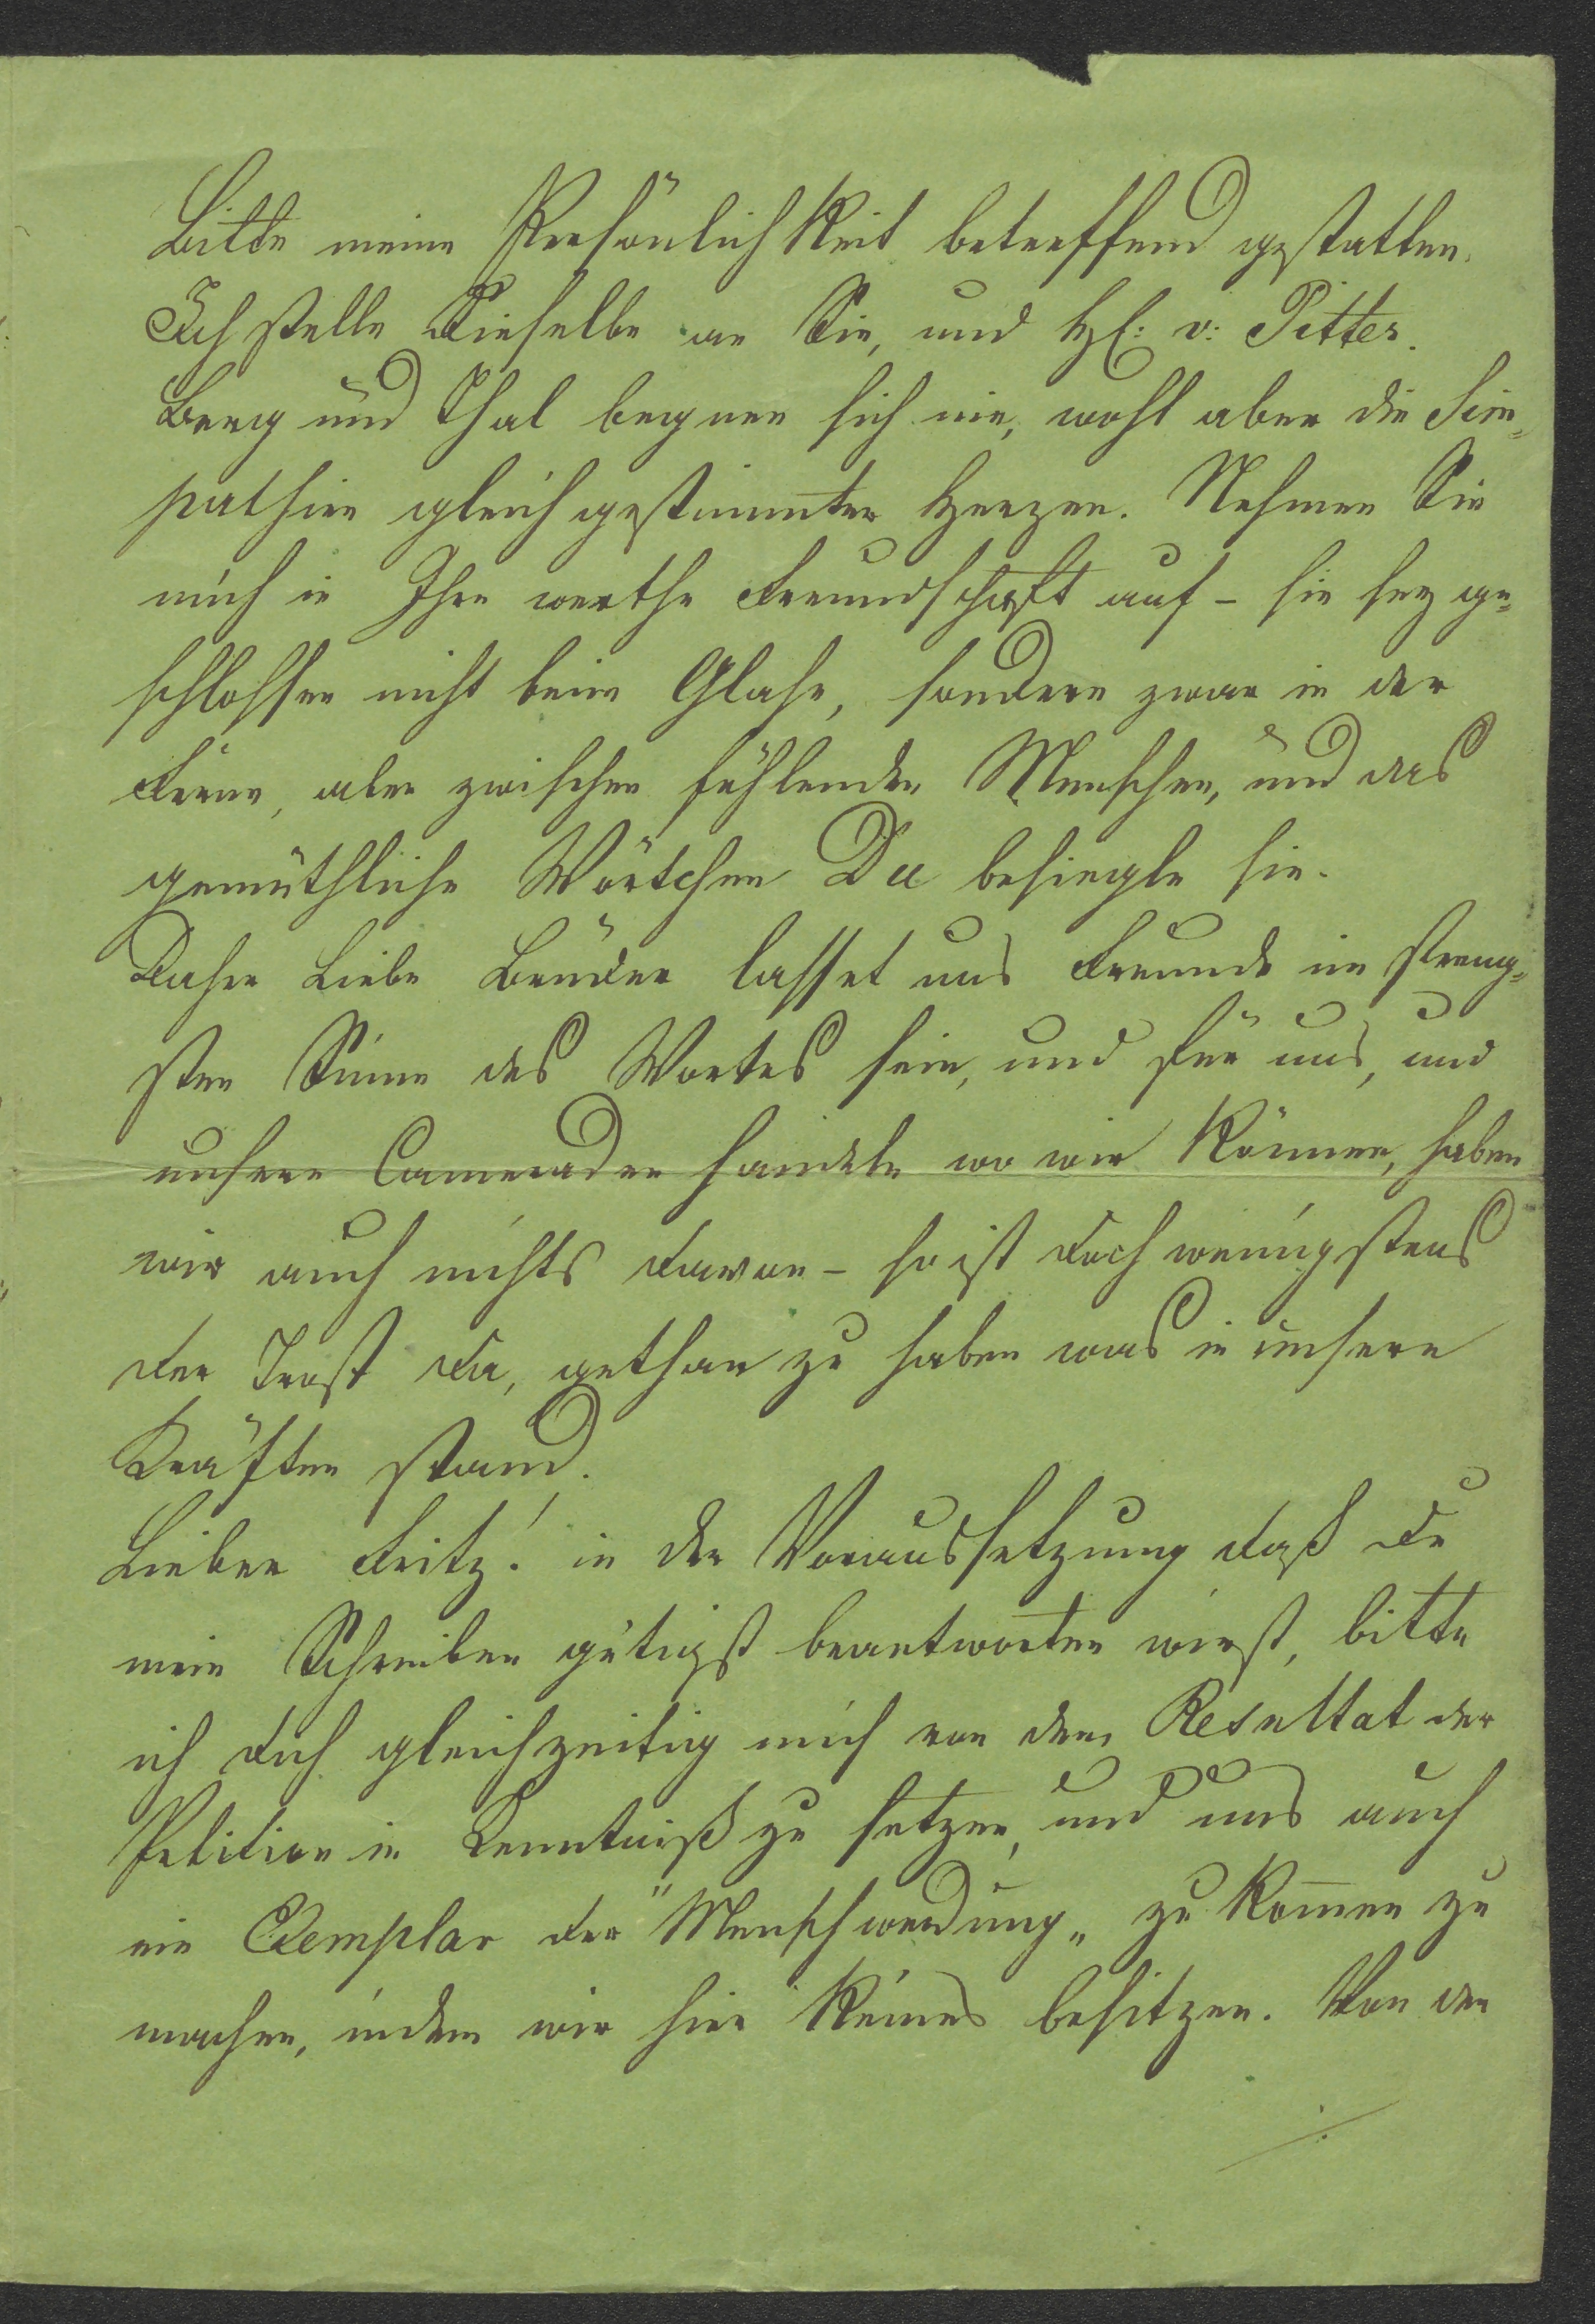 Bitte meine Persönlichkeit betreffend gestatten.
Ich stelle Dieselbe an Sie, und H: v: Pitter.
Berg und Thal begnen sich nie, wohl aber die Sim=
pathien gleich gestimmter Herzen. Nehmen Sie
mich in Ihre werthe Freundschaft auf – sie sey ge=
schlossen nicht beim Glase, sondern zwar in der
Ferne, aber zwischen fühlenden Menschen, und das
gemüthliche Wörtchen Du besiegle sie.
Daher Liebe Brüder lasset uns Freunde im streng=
sten Sinne des Wortes sein, und für uns, und
unsere Cameraden handeln wo wir können, haben
wir auch nichts davon – so ist doch wenigstens
der Trost da, gethan zu haben was in unsern
Kräften stand.
Lieber Fritz! in der Voraussetzung daß Du
mein Schreiben gütigst beantworten wirst, bitte
ich Dich gleichzeitig mich von dem Resultat der
Petition in Kenntniß zu setzen, und uns auch
ein Exemplar der "Menschwerdung„ zu kom̄en zu
machen, indem wir hier keines besitzen. Von der
./.